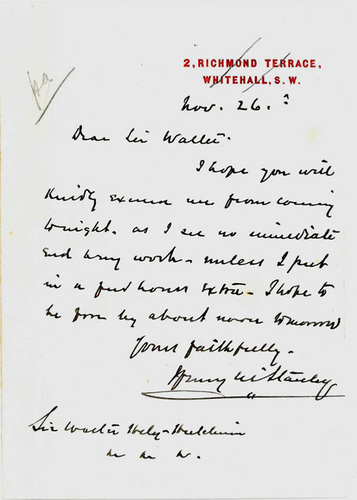 2, RICHMOND TERRACE,
WHITEHALL, S.W.
Nov. 26.
Dear Sir Walter.
I hope you will
kindly excuse me from coming
tonight. as I see no immediate
end to my work - unless I put
in a few hours extra - I hope to
be free by about noon tomorrow
Yours faithfully.
Henry M Stanley
Sir Walter Hely-Hutchinson